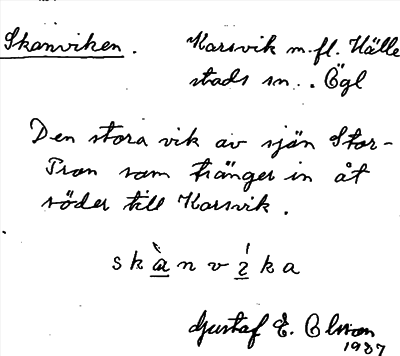 Skanviken. Karsvik m.fl. Hälle
stads sn. . Ögl
Den stora vik av sjön Stor-
Tron som tränger in åt
söder till Karsvik.
skànvı́ka
Gustaf E. Olsson
1937